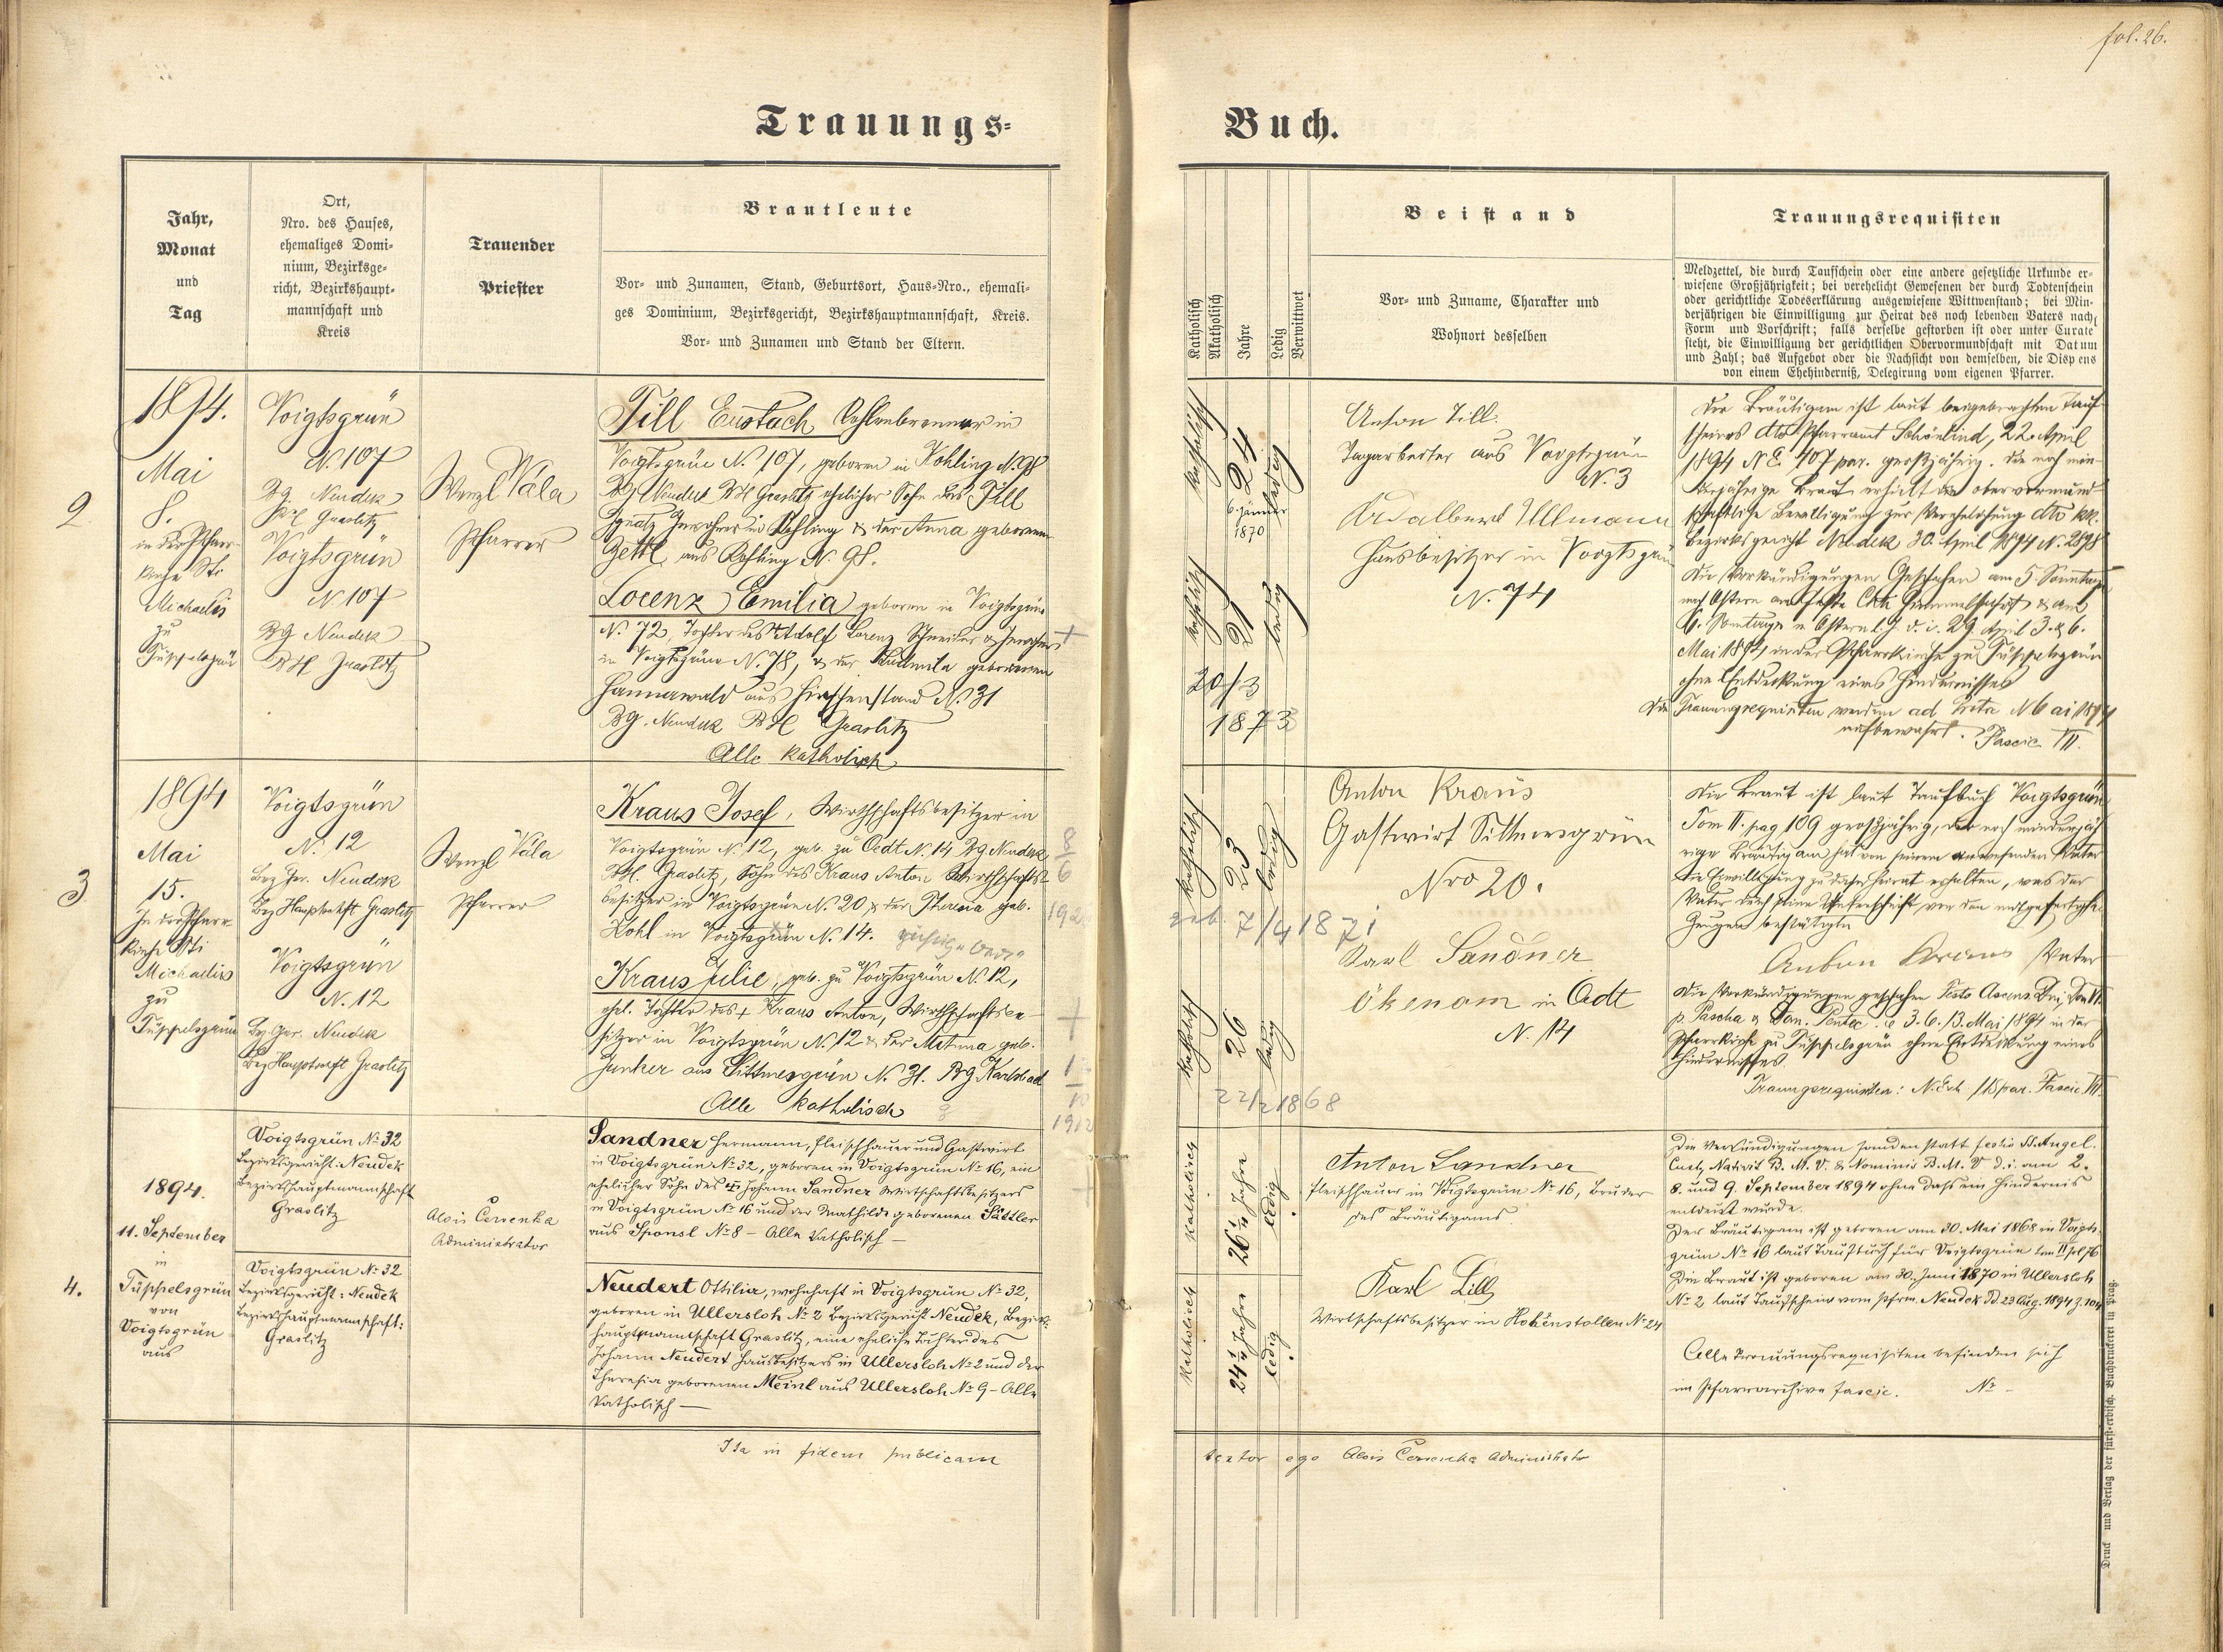 fol. 26.
Trauungs-
Buch.
Jahr,
Monat
und
Tag
Ort,
Nro. des Hauses,
ehemaliges Domi-
nium, Bezirksge-
richt, Bezirkshaupt-
mannschaft und
Kreis
Trauender
Priester
Brautleute
Vor- und Zunamen, Stand, Geburtsort, Haus-Nro., ehemali-
ges Dominium, Bezirksgericht, Bezirkshauptmannschaft, Kreis.
Vor- und Zunamen und Stand der Eltern.
Katholisch
Akatholisch
Jahre
Ledig
Verwittwet
Beistand
Vor- und Zuname, Charakter und
Wohnort desselben
Trauungsrequisiten
Meldzettel, die durch Taufschein oder eine andere gesetzliche Urkunde er-
wiesene Großjährigkeit; bei verehelicht Gewesenen der durch Todtenschein
oder gerichtliche Todeserklärung ausgewiesene Wittwenstand; bei Min-
derjährigen die Einwilligung zur Heirat des noch lebenden Vaters nach
Form und Vorschrift; falls derselbe gestorben ist oder unter Curate
steht, die Einwilligung der gerichtlichen Obervormundschaft mit Datum
und Zahl; das Aufgebot oder die Nachsicht von demselben, die Dispens
von einem Ehehinderniß, Delegirung vom eigenen Pfarrer.
2
1894.
Mai
8.
in der Pfarr-
kirche Sti
Michaelis
zu
Tüppelsgrün
Voigtsgrün
N. 107
Bg. Neudek
BH Graslitz
Voigtsgrün
N 107
Bg Neudek
BH Graslitz
Wenzl Vála
Pfarrer
Till Eustach Kohlenbrenner in
Voigtsgrün N. 107, geboren in Kohling N. 98
Bg Neudek BH Graslitz ehelicher Sohn des Till
Ignatz Inwohner in Kohling & der Anna geborenen
Zettl aus Kohling N. 98.
Lorenz Emilia geboren in Voigtsgrün
N. 72, Tochter des Adolf Lorenz Schneider & Inwohner
in Voigtsgrün N. 78, & der Ludmila geborenen
Hannawald aus Hirschenstand N. 31
Bg. Neudek BH Graslitz
Alle katholisch
katholisch
24
6. jänner
1870
ledig
katholisch
21
ledig
20/3
1873
Anton Till
Tagarbeiter aus Voigtsgrün
N. 3
Adalbert Ullmann
Hausbesitzer in Voigtsgrün
N. 74
Der Bräutigam ist laut beigebrachten Tauf-
scheines dto Pfarramt Schönlind, 22. April
1894 N E. 107 par. großjährig. Die noch min-
derjährige Braut erhielt die obervormund-
schaftliche Bewilligung zur Verehelichung dto kk.
Bezirksgericht Neudek 30. April 1894 N. 2898
Die Verkündigungen geschahen am 5 Sonntage
nach Ostern am Feste Christi Himmelfahrt & am
6. Sonntage n. Ostern d. i. 29 April 3. & 6.
Mai 1894 in der Pfarrkirche zu Tüppelsgrün
ohne Entdeckung eines Hindernisses
Die Trauungsrequisiten werden ad Mai 1894
aufbewahrt. Fascic VII.
3
1894
Mai
15.
In der Pfarr-
kirche Sti
Michaelis
zu
Tüppelsgrün
Voigtsgrün
N. 12
Bez Ger. Neudek
Bez Hauptmschft Graslitz
Voigtsgrün
N. 12
Bz. Ger. Neudek
Bez Hauptmschft Graslitz
Wenzl Vála
Pfarrer
Kraus Josef, Wirthschaftsbesitzer in
Voigtsgrün N. 12, geb. zu Oedt N. 14 Bg Neudek
BH. Graslitz, Sohn des Kraus Anton Wirthschafts-
besitzer in Voigtsgrün N. 20, & der Theresia geb.
Kohl in Voigtsgrün N. 14.
Kraus Julie, geb. zu Voigtsgrün N. 12,
ehel. Tochter des + Kraus Anton, Wirthschaftsbe-
sitzer in Voigtsgrün N. 12 & der geb.
Junker aus Sittmesgrün N. 31. Bg Karlsbad
Alle katholisch
8
6
192
1
10
1912
katholisch
23
ledig
geb. 7/4 1871
katholisch
26
ledig
22/2 1868
Anton Kraus
Gastwirt Sittmesgrün
Nro 20.
Karl Sandner
Ökenom in Oedt
N. 14
Die Braut ist laut Taufbuch Voigtsgrün
Tom II. pag 109 großjährig, der noch minderjäh-
rige Bräutigam hat von seinem anwesenden Vater
die Einwilligung zu dieser Heirat erhalten, was der
Vater durch seine Unterschrift vor den mitgefertigten
Zeugen bestätigte
Anton Kraus Vater
Die Verkündigungen geschahen Festo Ascens. Dni, Dom VI.
p. Pascha & Dom. Pentec. i.e 3. 6. 13. Mai 1894 in der
Pfarrkirche zu Tüppelsgrün ohne Entdeckung eines
Hindernisses
Trauungsrequisiten: N. Exh. 118 par. Fascic VII.
4.
1894.
11. September
in
Tüppelsgrün
von
Voigtsgrün
aus
Voigtsgrün No 32
Bezirksgericht: Neudek
Bezirkshauptmannschaft
Graslitz
Voigtsgrün No 32
Bezirksgericht: Neudek
Bezirkshauptmannschaft:
Graslitz
Alois Červenka
Administrator
Sandner Hermann, Fleischhauer und Gastwirt
in Voigtsgrün No 32, geboren in Voigtsgrün No 16, ein
ehelicher Sohn des Johann Sandner Wirtschaftsbesitzers
in Voigtsgrün No 16 und der Mathilde geborenen Sattler
aus Sponsl No 8 – Alle katholisch –
Neudert Ottilia, wohnhaft in Voigtsgrün No 32,
geboren in Ullersloh No 2 Bezirksgericht Neudek, Bezirks-
hauptmannschaft Graslitz, eine eheliche Tochter des
Johann Neudert Hausbesitzers in Ullersloh No 2 und der
Theresia geborenen Meinl aus Ullersloh No 9 – Alle
katholisch –
katholisch
26 1/4 Jahre
ledig
katholisch
24 1/4 Jahre
ledig
Anton Sandner
Fleischhauer in Voigtsgrün No 16, Bruder
des Bräutigams
Karl Lill
Wirtschaftsbesitzer in Hohenstollen No 24
Die Verkündigungen fanden statt festis S. Angel.
Cust, Nativit B. M. V. & Nominis B. M. V d. i. am 2.
8. und 9. September 1894 ohne daß ein Hindernis
entdeckt wurde.
Der Bräutigam ist geboren am 30. Mai 1868 in Voigts-
grün No 16 laut Taufbuch für Voigtsgrün tom II fol 76
Die Braut ist geboren am 30. Juni 1870 in Ullersloh
No 2 laut Taufschein vom Pfrm. Neudek dd. 23 Aug. 1894 Z. 104
Alle Trauungsrequisiten befinden sich
im Pfarrarchive fascic. No –
Ita in fidem publicam
testor ego Alois Červenka Administrator
Druck und Verlag der fürst-erzbisch. Buchdruckerei in Prag.